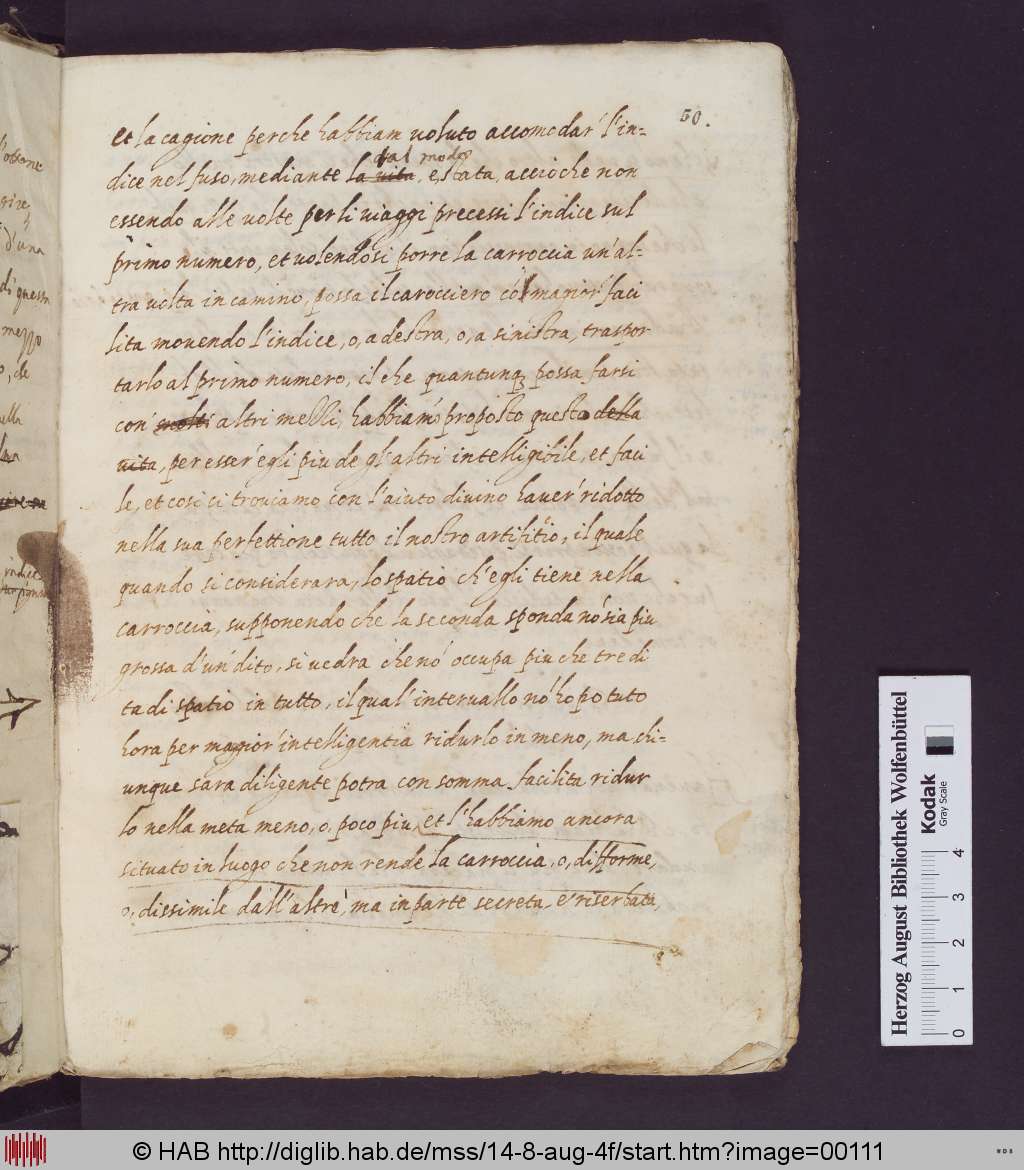 50.
et la cagione perche habbiam voluto accomodar' l'in=
dice nel fuso, mediante la vita tal modo, e, stata, accioche non
essendo alle volte per li viaggi precessi l'indice sul
primo numero, et volendosi porre la carroccia un'al=
tra volta in camino, possa il carocciero có'l magior' faci
lita movendo l'indice, o, a destra, o, a sinistra, traspor
tarlo al primo numero, il che quantunq possa farsi
con' molti altri mezzi, habbiamo proposto questo della
vita, per esser' egli piu de gl'altri intelligibile, et faci
le, et cosi ci troviamo con l'aiuto divino haver' ridotto
nella sua perfettione tutto il nostro artifitio, il quale
quando si considerara, lo spatio ch'egli tiene nella
carroccia, supponendo che la seconda sponda nó sia piu
grossa d'un' dito, si vedra che nó occupa piu che tre di
ta di spatio in tutto, il qual' intervallo nó ho potuto
hora per magior' intelligentia ridurlo in meno, ma chi=
unque sara diligente potra con somma facilita ridur
lo nella meta meno, o, poco piu, et l'habbiamo ancora
situato in luogo che non rende la carroccia, o, difforme,
o, dissimile dall'altre, ma in parte secreta, e' riserbata,
d'una
di questa
mezzo
Herzog August Bibliothek Wolfenbüttel
Kodak
Gray Scale
0 1 2 3 4
© HAB http://diglib.hab.de/mss/14-8-aug-4f/start.htm?image=00111